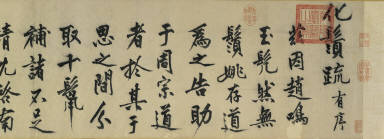 化鬚疏 有序
茲因趙鳴
玉髡然無
鬚姚存道
為之告助
于周宗道
者於其于
思之間分
取十鬣
補諸不足
請沈啓南